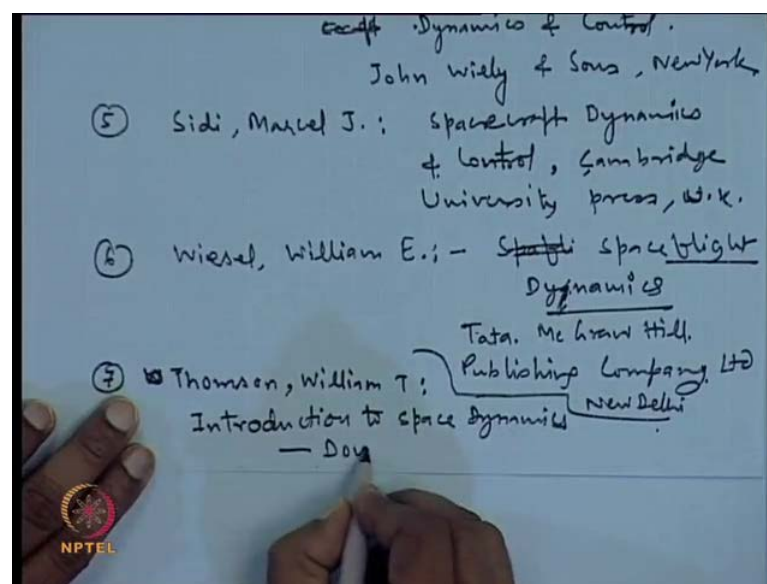 Dynamics & Control.
John Wiely & Sons, New York
5 Sidi, Marcel J.: Spacecraft Dynamics
& Control, Cambridge
University press, U.K.
6 Wiesel, William E.:- space flight
Dynamics
Tata. Mc Graw Hill.
Publishing Company. Ltd
New Delhi
7 Thomson, William T:
Introduction to space Dynamics
— Dov
NPTEL